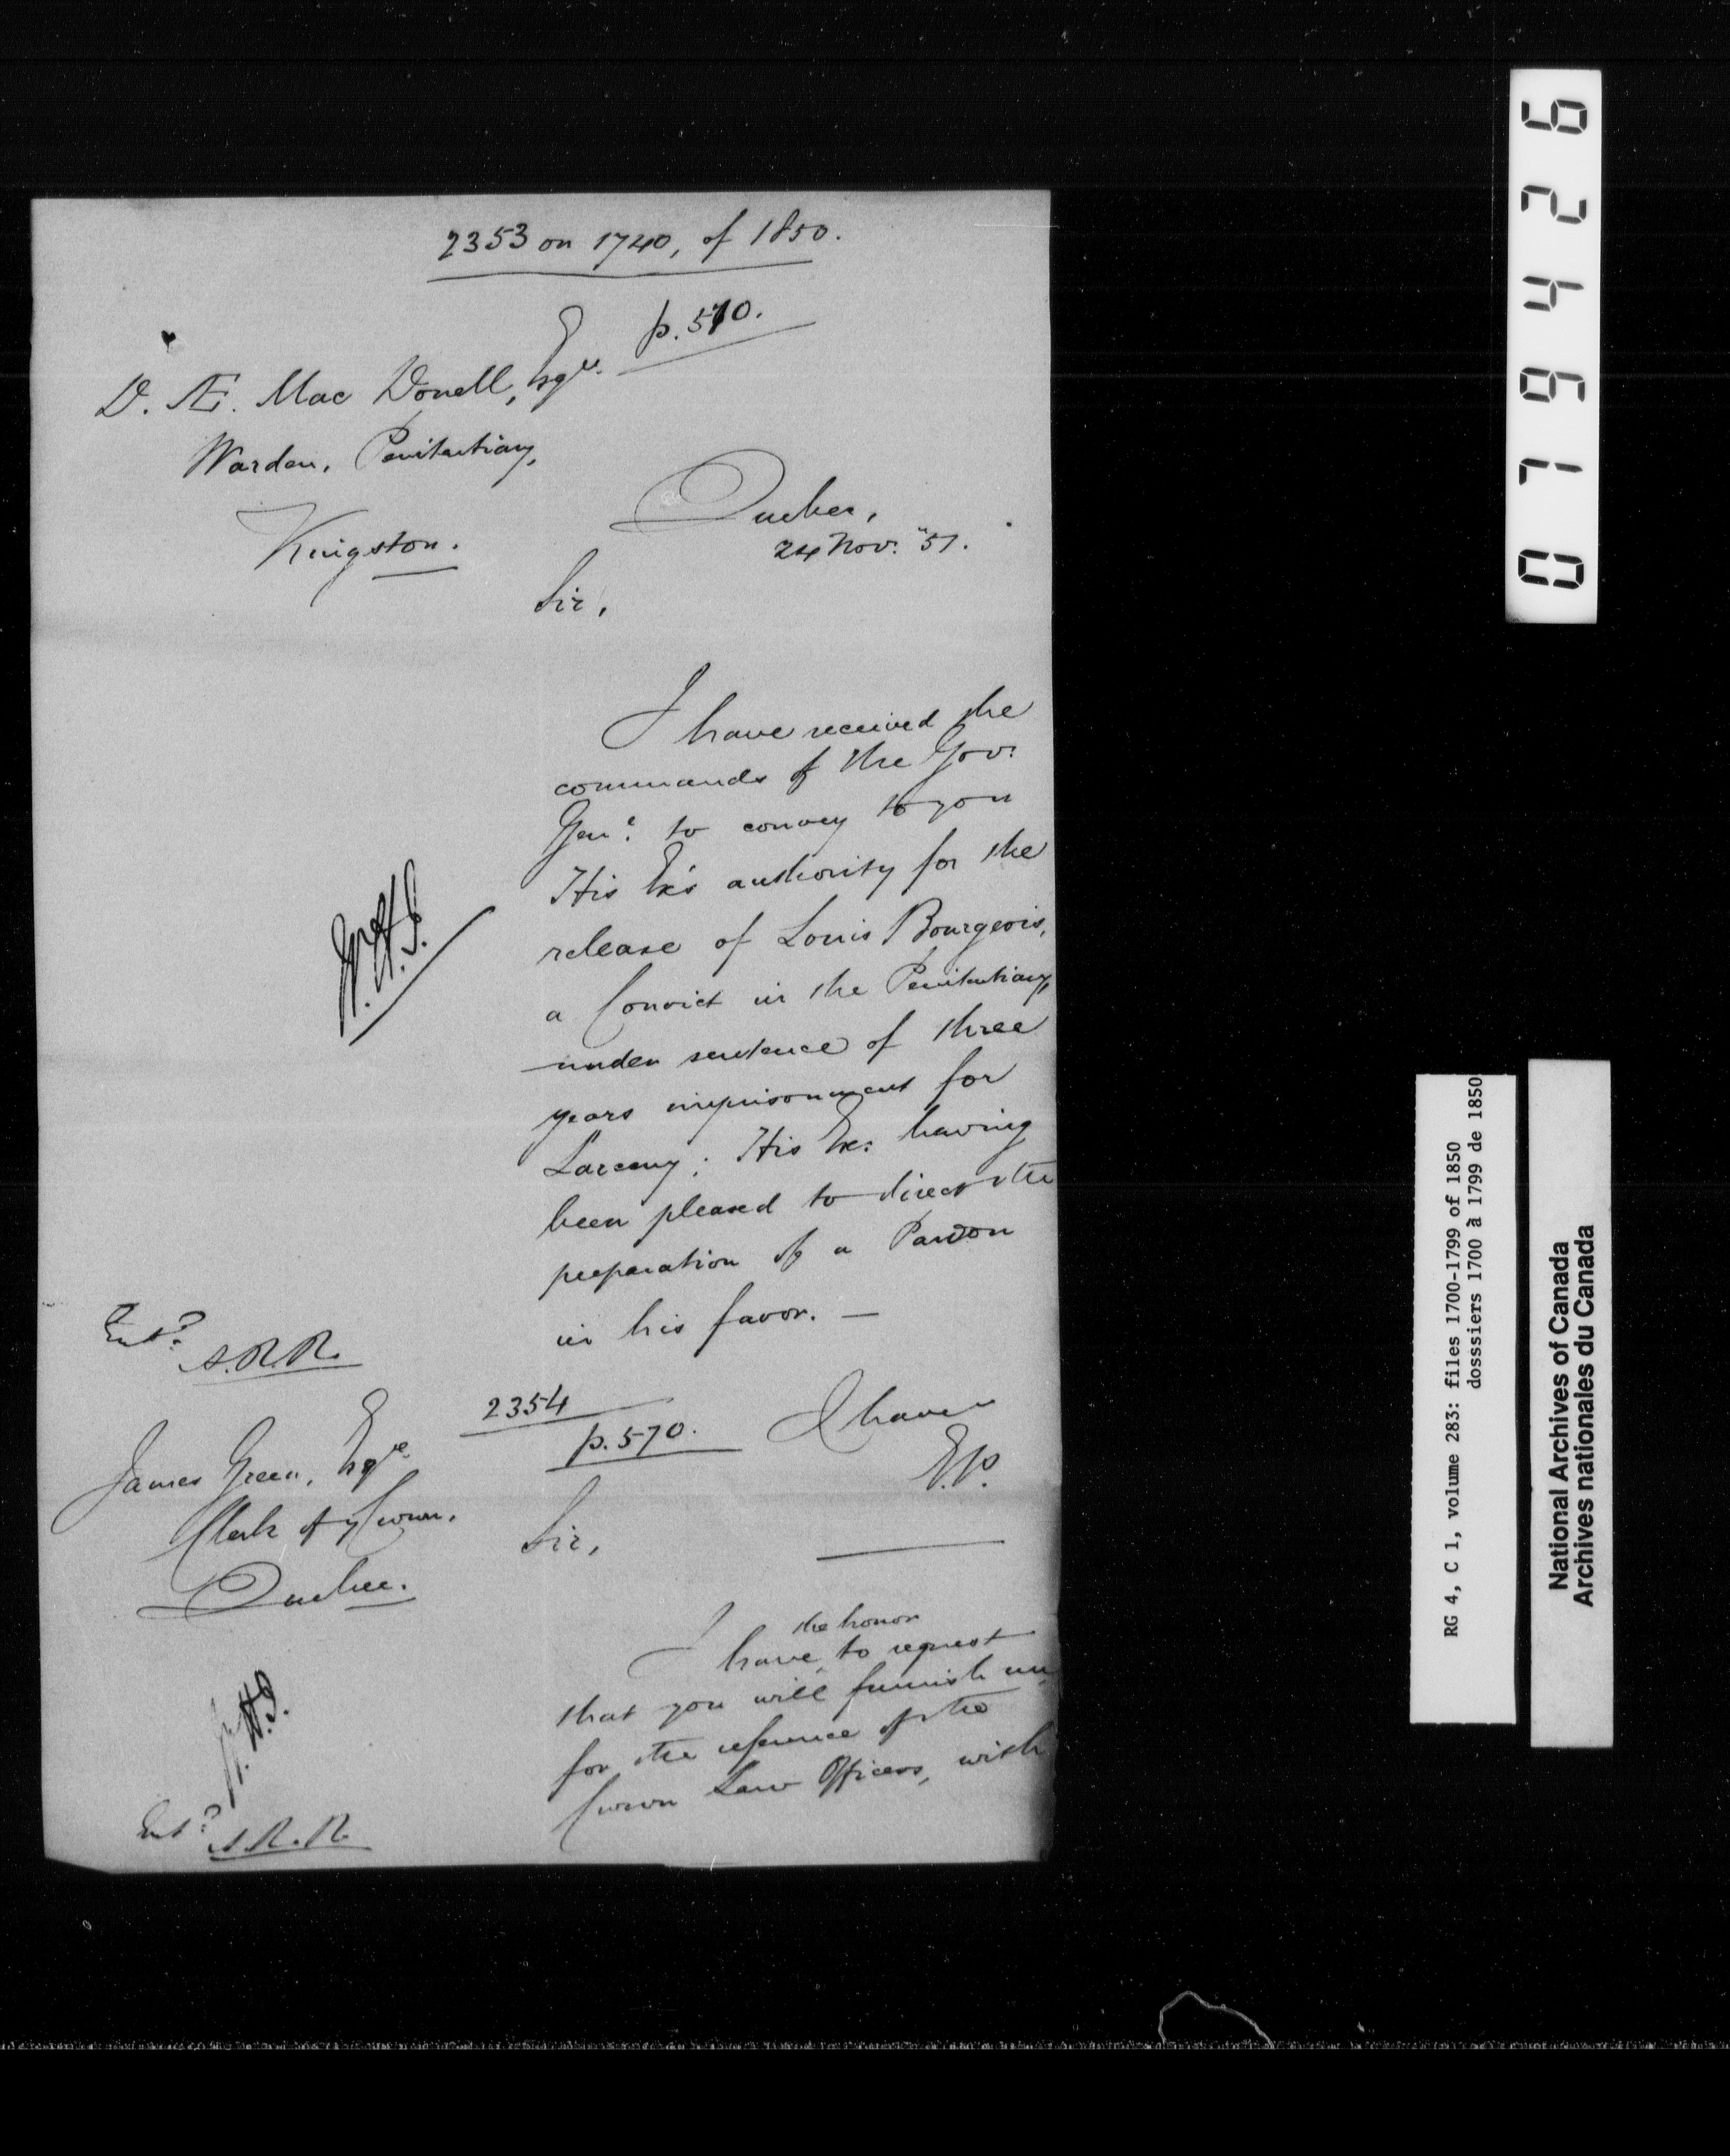 2353 on 1740, of 1850.
p. 570.
D. Æ. Mac Donell, Esqre.
Warden, Penitentiary,
Kingston.
Quebec,
24 Nov: "51.
Sir,
I have received the
commands of the Gov:
Genl: to convey to you
His Ex's authority for the
release of Louis Bourgeois,
a Convict in the Penitentiary,
under sentence of three
years imprisonment for
Larceny; His Ex: having
been pleased to direct the
preparation of a Pardon
in his favor. —
Entd: A.R.R.
I have
E.P.
2354
p. 570.
James Green, Esqre
Clerk of ye Crown.
Quebec.
Sir,
the honor
I have to request
that you will furnish me,
for the reference of the
Crown Law Officers, with
Entd: A.R.R.
079426
RG 4, C 1, volume 283: files 1700-1799 of 1850
dosssiers 1700 à 1799 de 1850
National Archives of Canada
Archives nationales du Canada